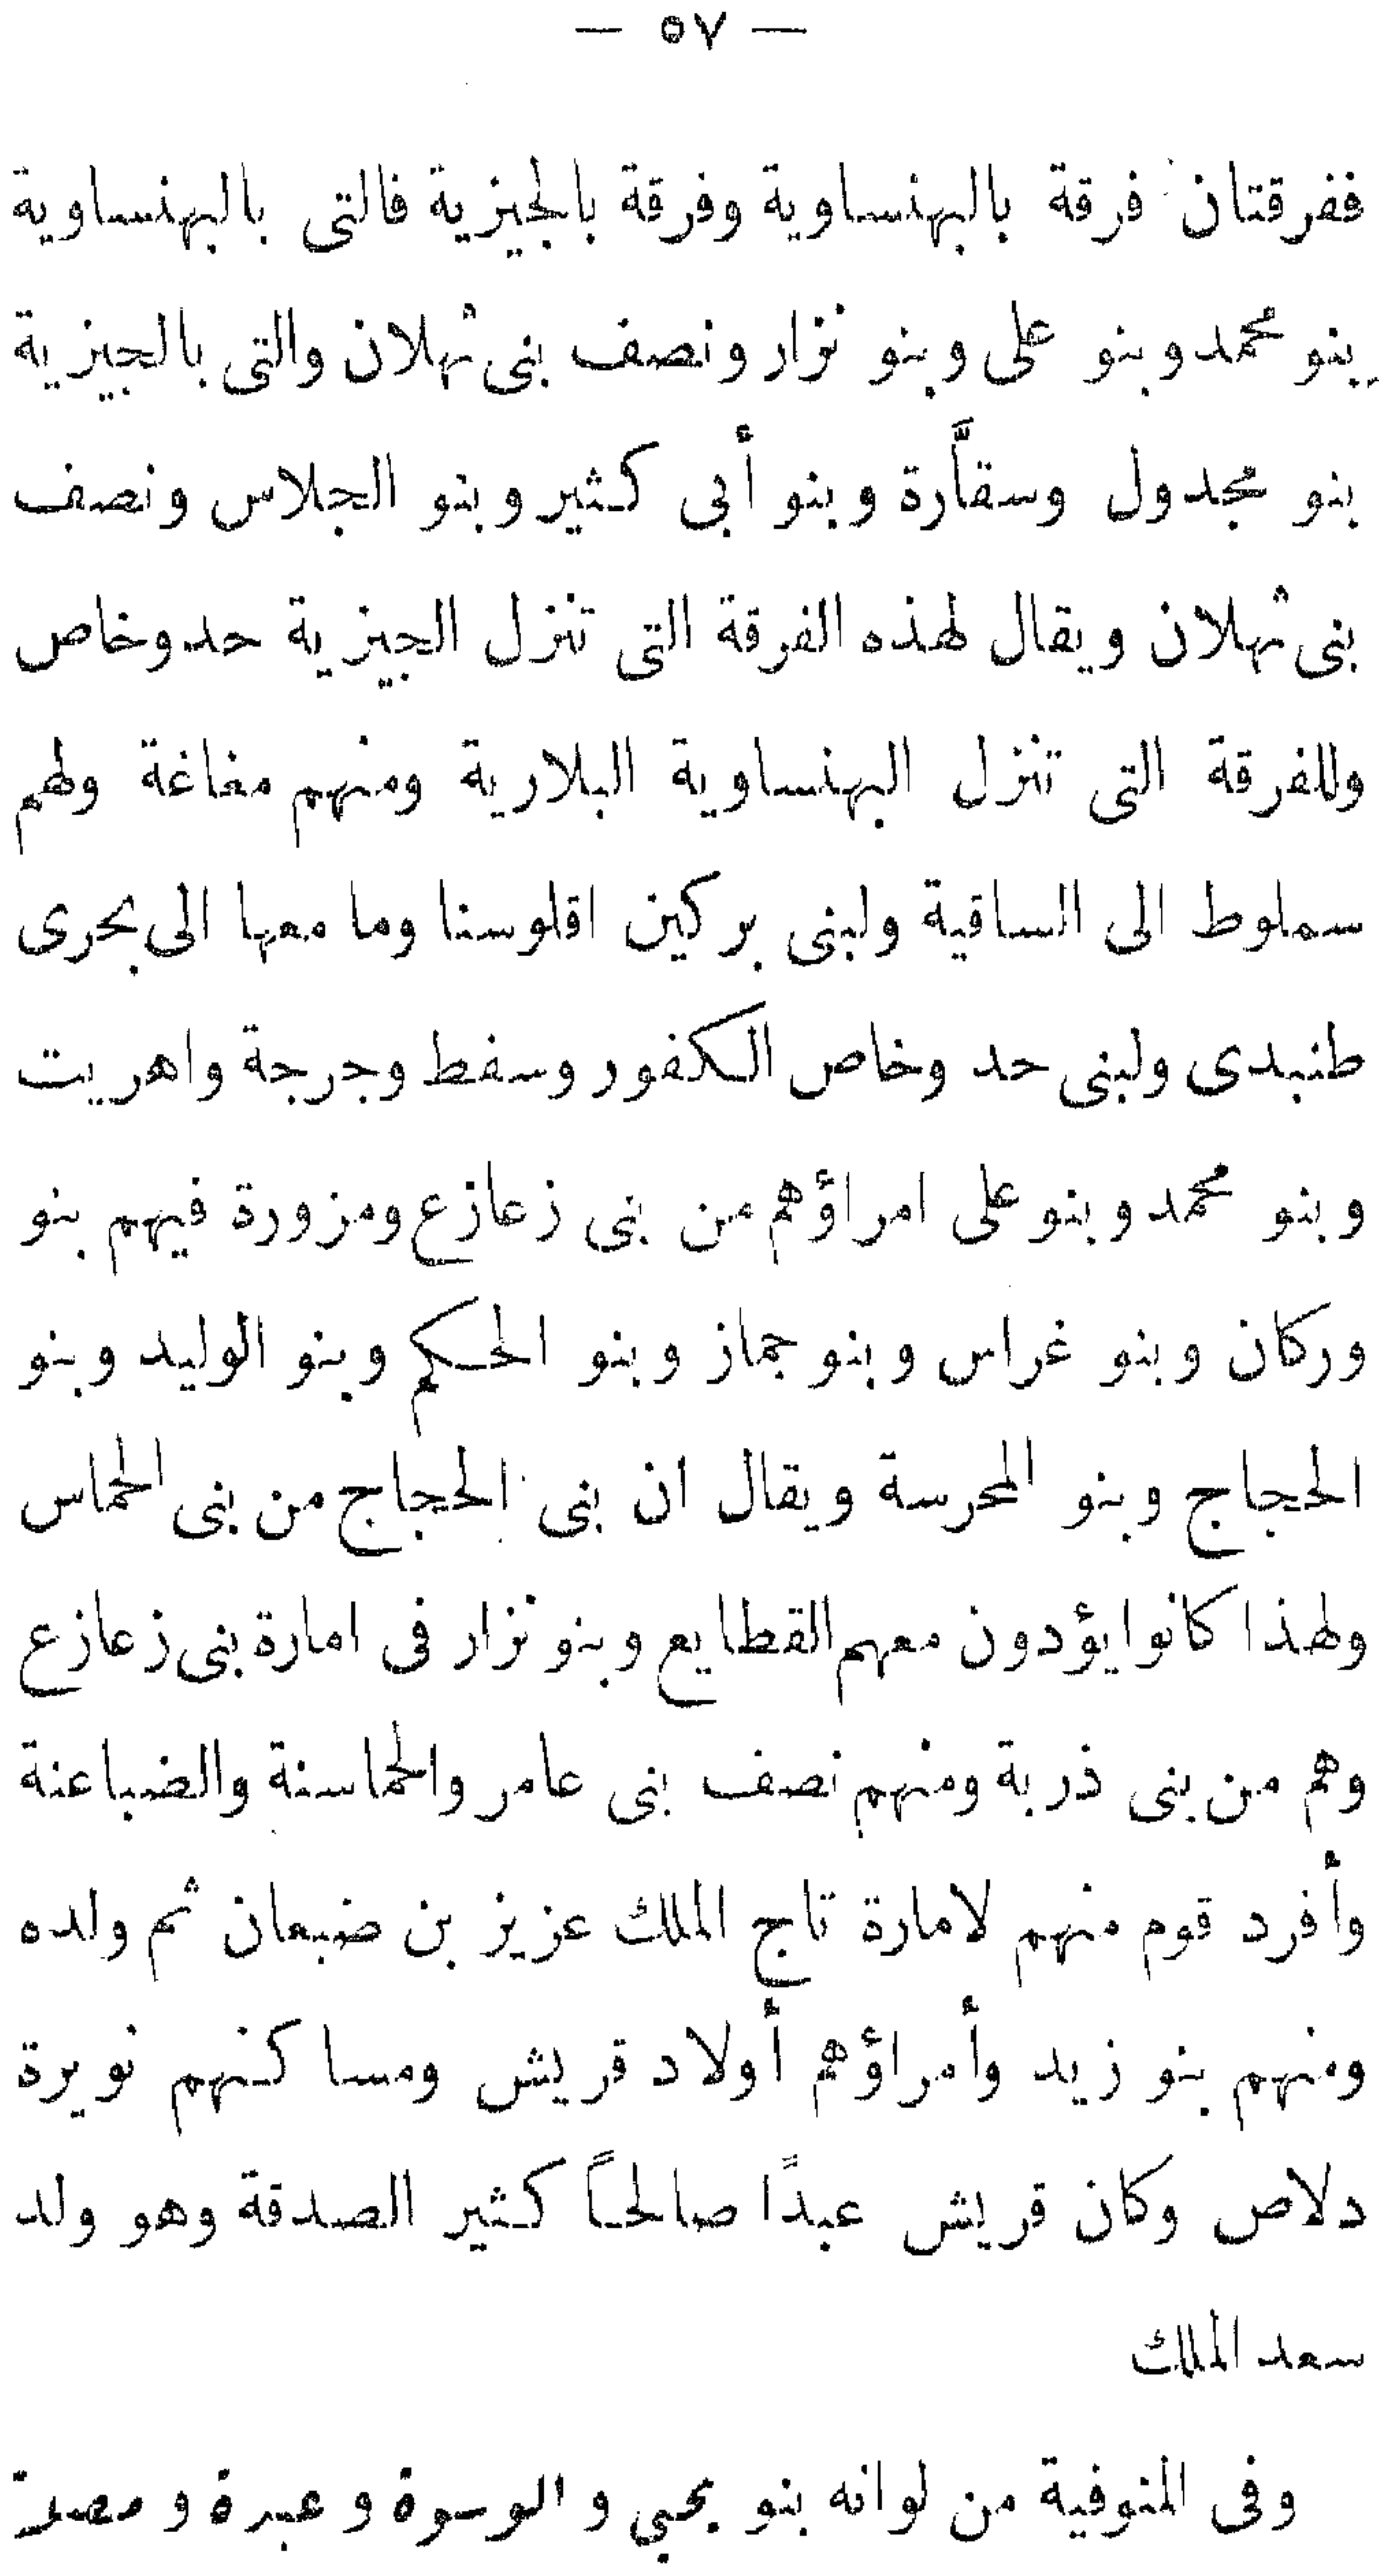 — ٥٧ —
ففرقتان فرقة بالبهنساوية وفرقة بالجيزية فالتى بالبهنساوية
بنو محمد وبنو على وبنو نزار ونصف بنى ثهلان والتى بالجيزية
بنو مجدول وسقَّارة وبنو أبى كثير وبنو الجلاس ونصف
بنى ثهلان ويقال لهذه الفرقة التى تنزل الجيزية حدوخاص
وللفرقة التى تنزل البهنساوية البلارية ومنهم مغاغة ولهم
سملوط الى الساقية ولبنى بركين اقلوسنا وما معها الى بحرى
طنبدى ولبنى حد وخاص الكفور وسفط وجرجة واهريت
وبنو محمد وبنو على امراؤهم من بنى زعازع ومزورة فيهم بنو
وركان وبنو غراس وبنو جماز وبنو الحكم وبنو الوليد وبنو
الحجاج وبنو المحرسة ويقال ان بنى الحجاج من بنى الحماس
ولهذا كانوا يؤدون معهم القطايع وبنو نزار فى امارة بنى زعازع
وهم من بنى ذربة ومنهم نصف بنى عامر والحماسنة والضباعنة
وأفرد قوم منهم لامارة تاج الملك عزيز بن ضبعان ثم ولده
ومنهم بنو زيد وأمراؤهم أولاد قريش ومساكنهم نويرة
دلاص وكان قريش عبدًا صالحاً كثير الصدقة وهو ولد
سعد الملك
وفى المنوفية من لوانه بنو يحيي و الوسوة و عبرة و مصلة